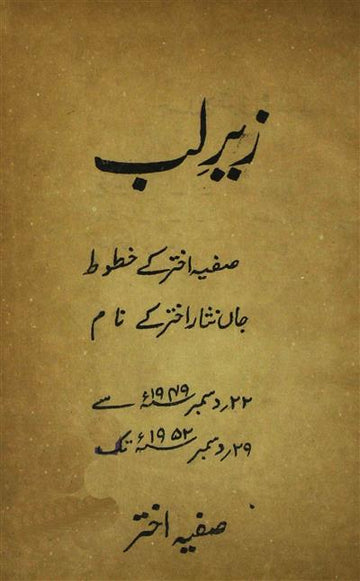 زیرِ لب
صفیہ اختر کے خطوط
جاں نثار اختر کے نام
۲۲؍دسمبر ۱۹۴۹ء سے
۲۹؍دسمبر ۱۹۵۲ء تک
صفیہ اختر